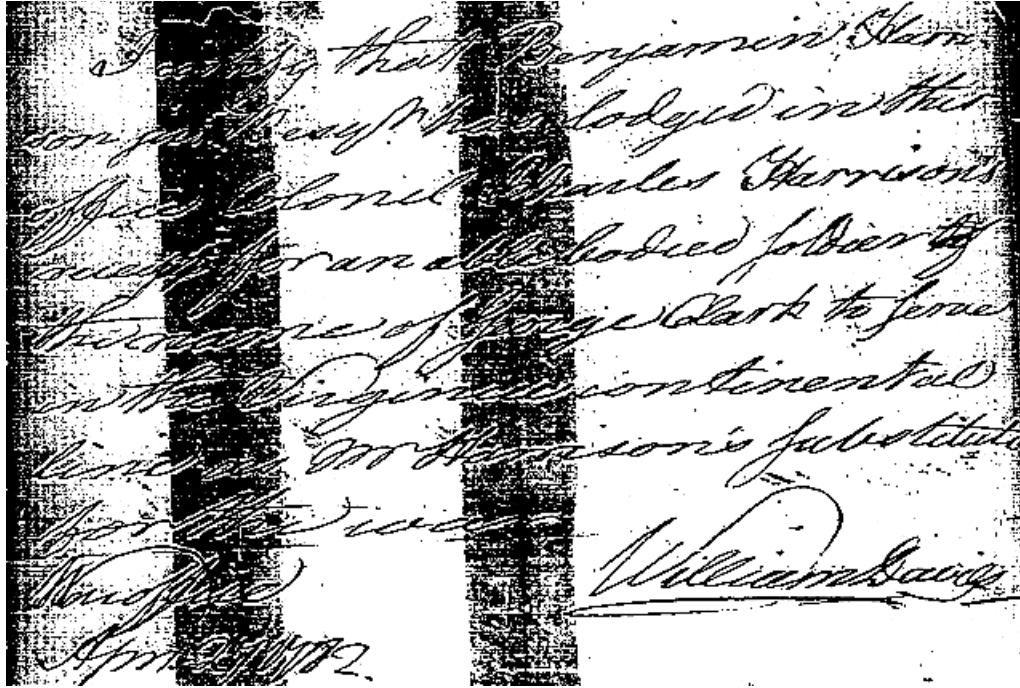 I certify that Benjamin Harri
son jun. Esqr. has lodged in this
office Colonel Charles Harrison's
receipt for an able bodied soldier by
the name of George Clark to serve
in the Virginia continental
line as Mr Harrison's substitute
for the war
War Office
William Davies
April 1782.